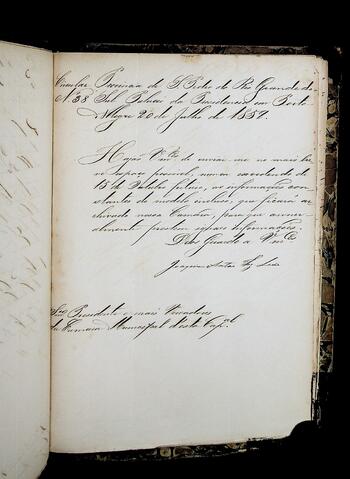 Circular Provincia de S. Pedro do Rio Grande do
N. 38 Sul Palacio da Presidencia em Porto
Alegre 20 de Julho de 1859.
Hajão Vmces de enviar-me no mais bre
ve espaço possivel, nunca excedendo de
15 de Outubro futuro, as informações cons
tantes do modelo incluso, que ficará ar
chivado nessa Camara, para que annu
almente prestem iguaes informações.
Deos Guarde a Vmces
Joaquim Antão Fz Leão
Snrs Presidente e mais Vereadores
da Camara Municipal desta Capal